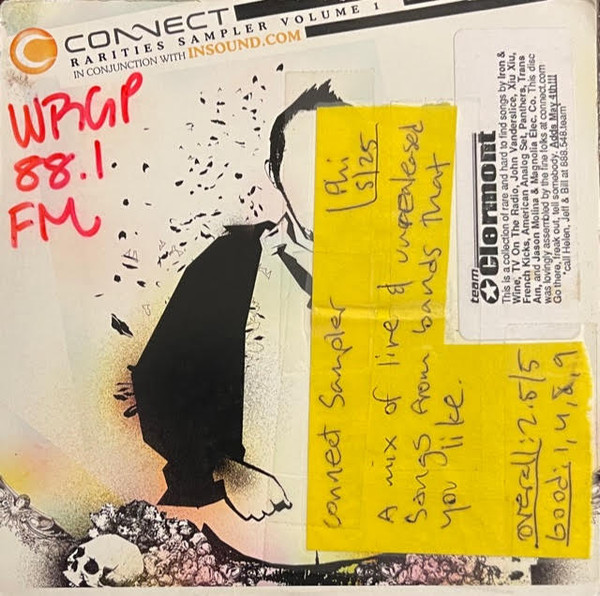 CONNECT
RARITIES SAMPLER VOLUME 1
IN CONJUNCTION WITH INSOUND.COM
WRGP
88.1
FM
Connect Sampler
Phi
5/25
A mix of live & unreleased
songs from bands that
you like.
overall: 2.5/5
Good: 1, 4, 8, 9
team
Clermont
This is a collection of rare and hard to find songs by Iron &
Wine, TV On The Radio, John Vanderslice, Xiu Xiu,
French Kicks, American Analog Set, Panthers, Trans
Am, and Jason Molina & Magnolia Elec. Co. This disc
was lovingly assembled by the fine folks at connect.com
Go there, freak out, tell somebody. Adds May 4th!!!
*call Helen, Jeff & Bill at 888.548.team*